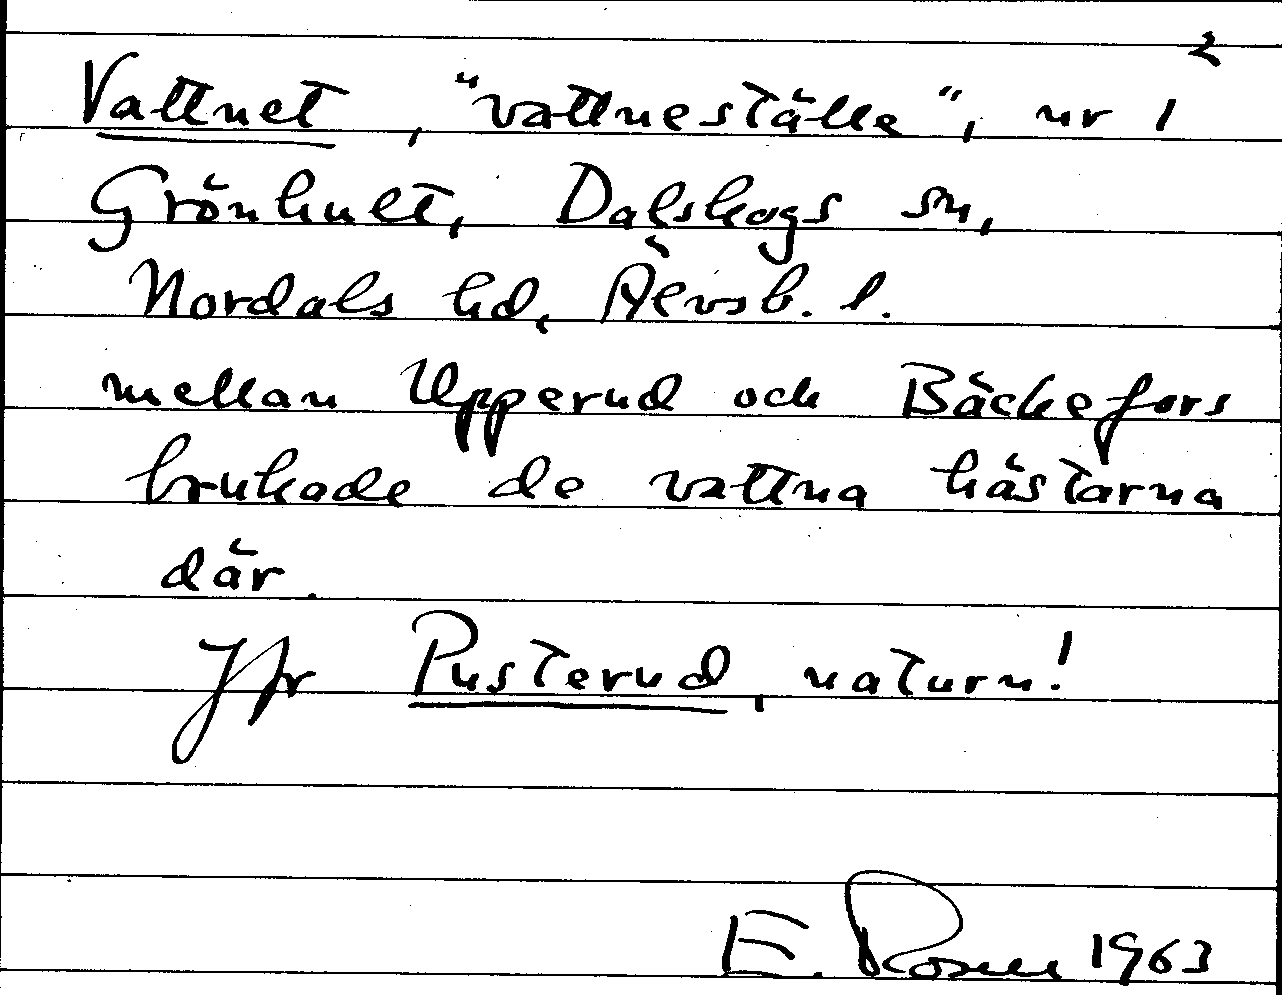 2
Vattnet, "vattneställe", nr 1
Grönhult, Dalskogs sn,
Nordals hd, Älvsb. l.
mellan Upperud och Bäckefors
brukade de vattna hästarna
där.
Jfr Pusterud, naturn!
E. Rosell 1963